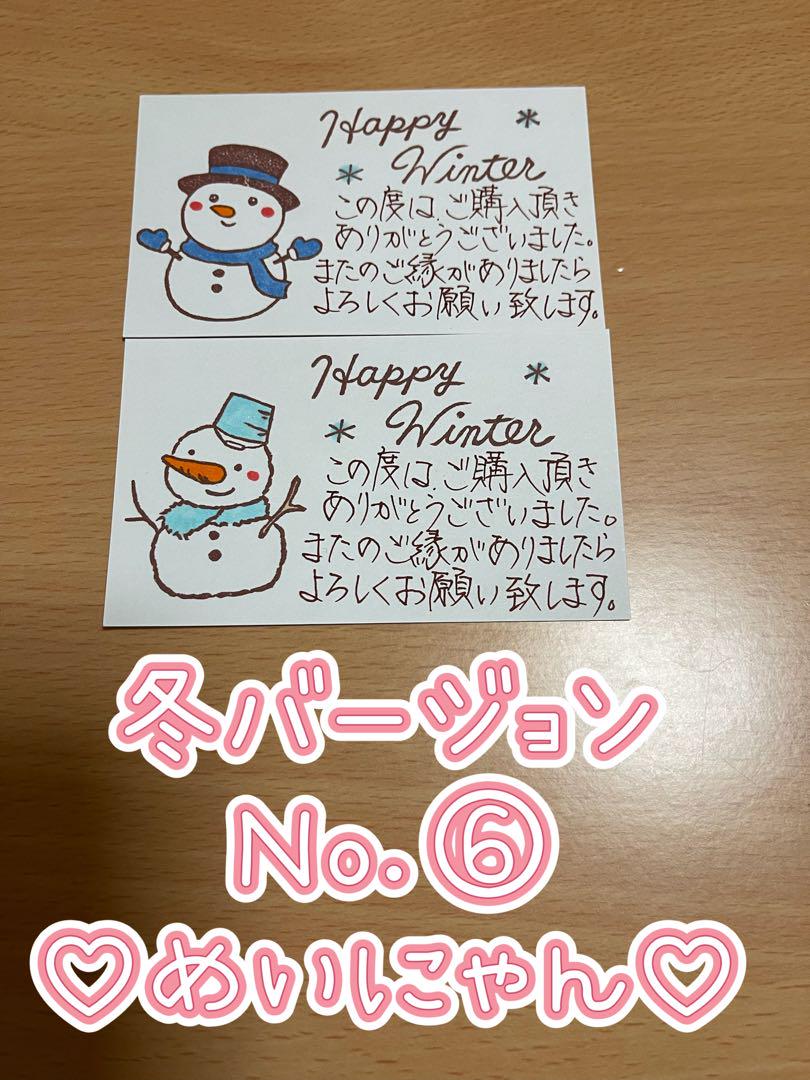 Happy
Winter
この度は、ご購入頂き
ありがとうございました。
またのご縁がありましたら
よろしくお願い致します。
Happy
Winter
この度は、ご購入頂き
ありがとうございました。
またのご縁がありましたら
よろしくお願い致します。
冬バージョン
No.⑥
♡めいにゃん♡